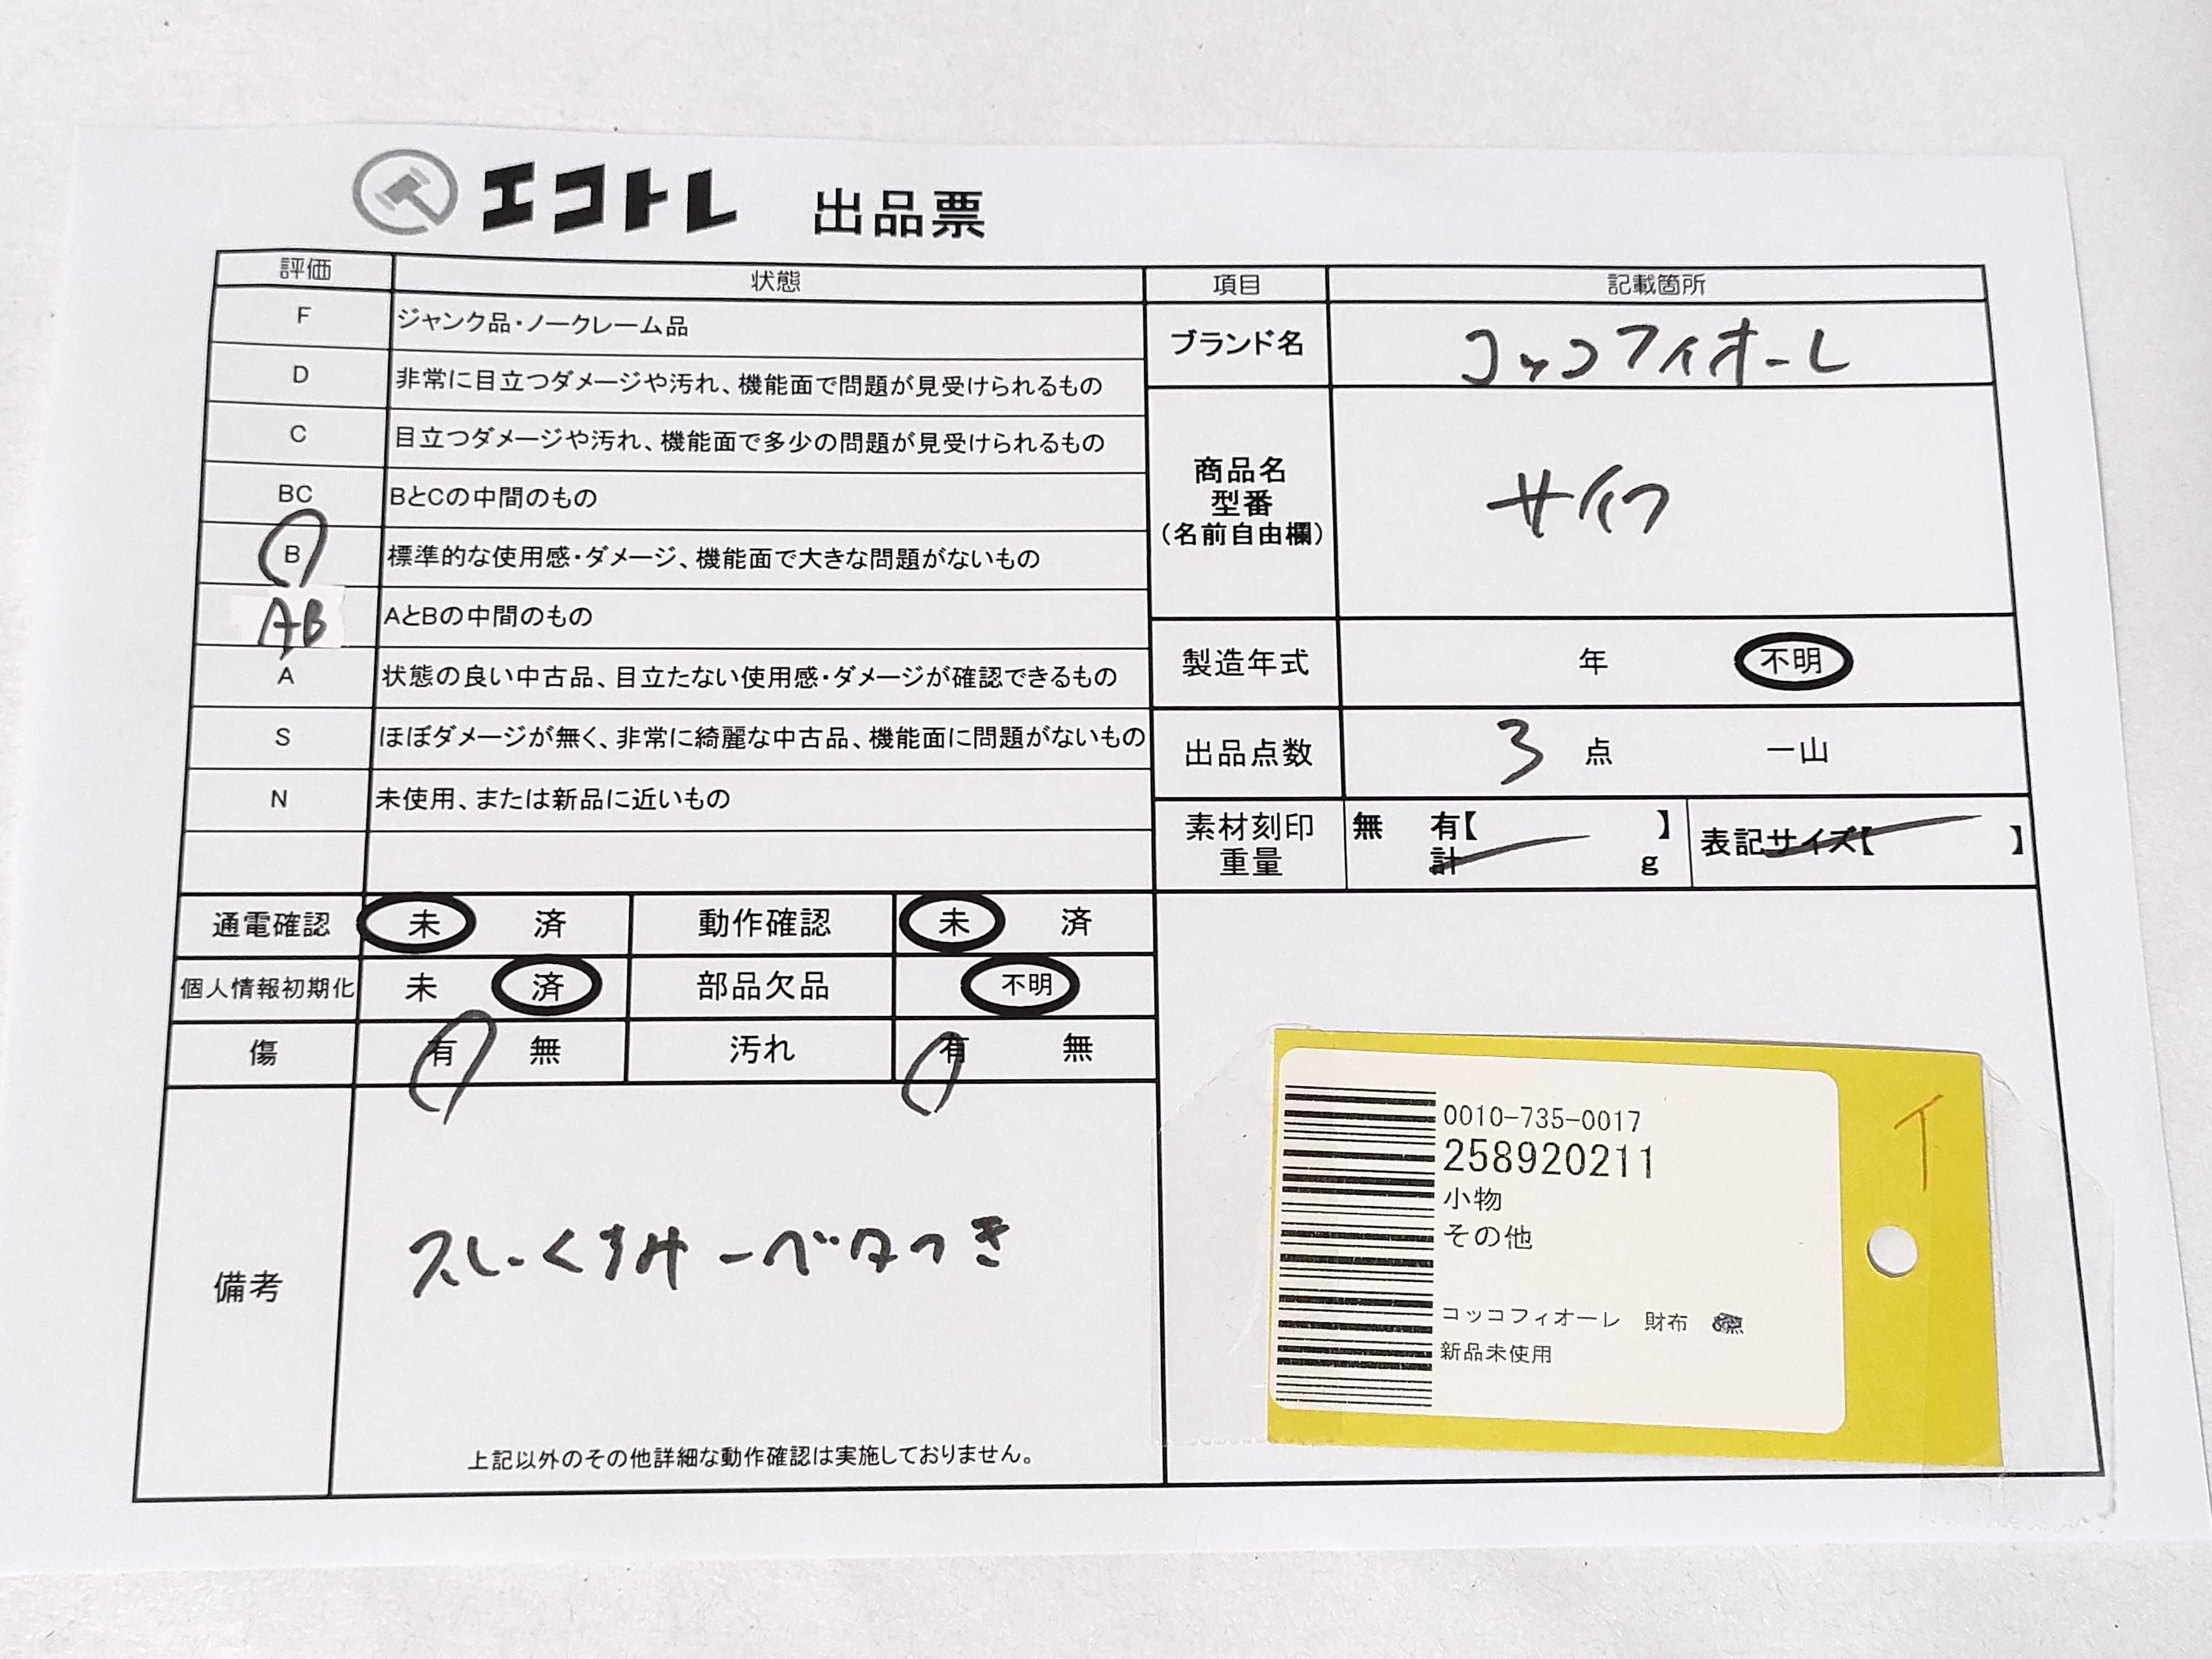 エコトレ 出品票
評価 状態
F ジャンク品・ノークレーム品
D 非常に目立つダメージや汚れ、機能面で問題が見受けられるもの
C 目立つダメージや汚れ、機能面で多少の問題が見受けられるもの
BC BとCの中間のもの
B 標準的な使用感・ダメージ、機能面で大きな問題がないもの
AB AとBの中間のもの
A 状態の良い中古品、目立たない使用感・ダメージが確認できるもの
S ほぼダメージが無く、非常に綺麗な中古品、機能面に問題がないもの
N 未使用、または新品に近いもの
項目 記載箇所
ブランド名 コッコフィオーレ
商品名
型番
(名前自由欄)
サイフ
製造年式 年 不明
出品点数 3 点 一山
素材刻印 無 有【 】
重量 計 g
表記サイズ【 】
通電確認 未 済 動作確認 未 済
個人情報初期化 未 済 部品欠品 不明
傷 有 無 汚れ 有 無
備考
スレ・くすみ ベタつき
上記以外のその他詳細な動作確認は実施しておりません。
0010-735-0017
258920211
小物
その他
コッコフィオーレ 財布
新品未使用
イ